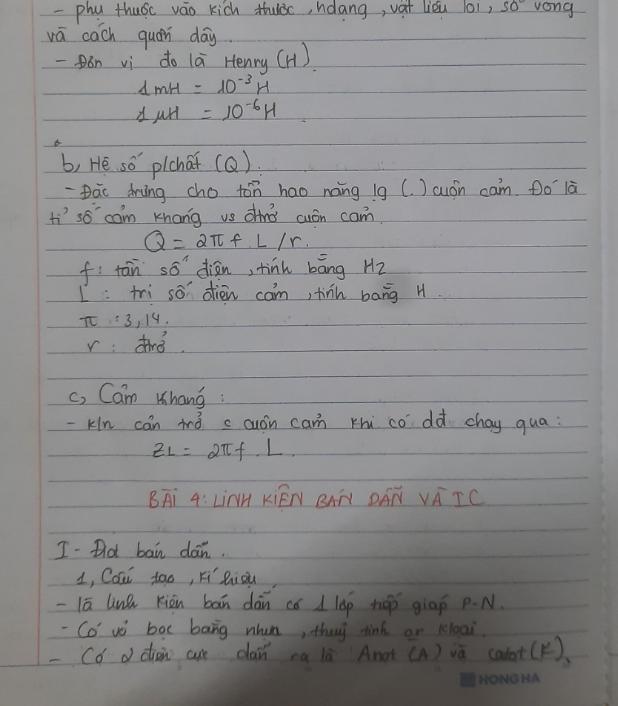 - phụ thuộc vào kích thước, hdạng, vật liệu lõi, số vòng
và cách quấn dây.
- Đơn vị đo là Henry (H)
1 mH = 10⁻³ H
1 µH = 10⁻⁶ H
b, Hệ số p/chất (Q).
- Đặc trưng cho tổn hao năng lg (.) cuộn cảm. Đó là
tỉ số cảm kháng vs đtrở cuộn cảm
Q = 2πf. L / r.
f: tần số điện, tính bằng Hz
L: trị số điện cảm, tính bằng H.
π : 3,14.
r : đtrở.
c, Cảm kháng:
- kn cản trở c cuộn cảm khi có dđ chạy qua:
ZL = 2πf. L.
BÀI 4: LINH KIỆN BÁN DẪN VÀ IC
I - Điot bán dẫn.
1, Cấu tạo, kí hiệu
- là linh kiện bán dẫn có 1 lớp tiếp giáp P-N.
- Có vỏ bọc bằng nhựa, thuỷ tinh or kloại.
- Có 2 điện cực dẫn ra là Anot (A) và catot (K),
HONG HA